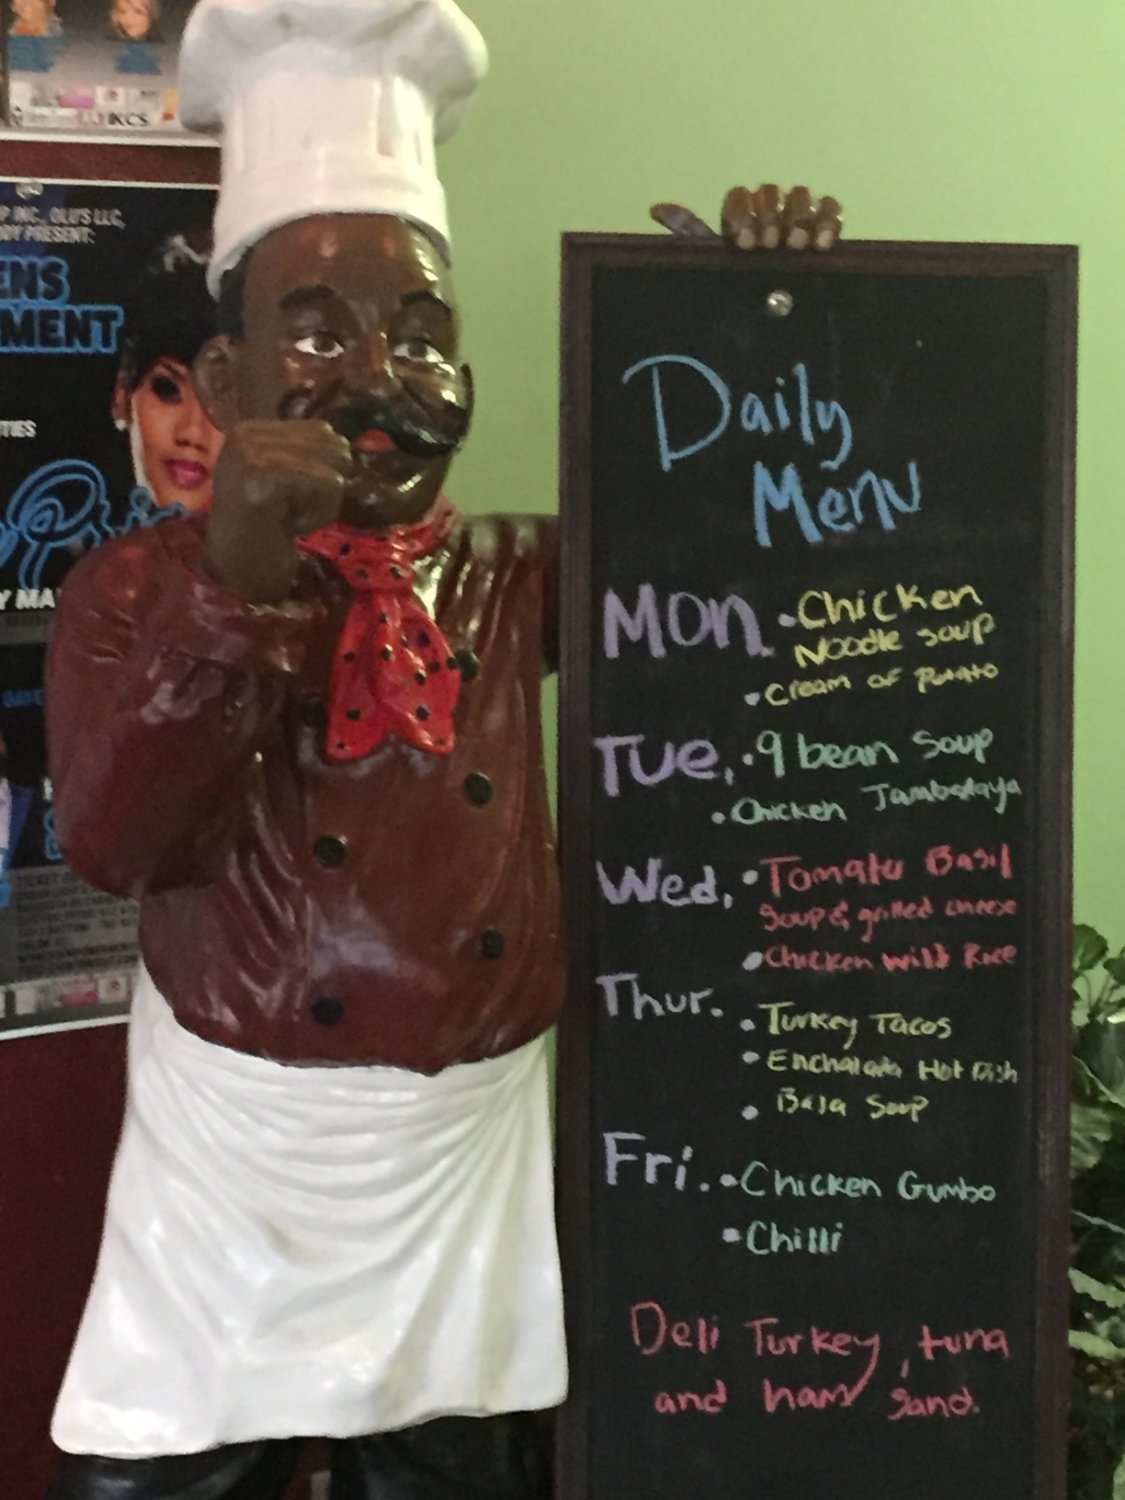 KCS
P INC., OLU'S LLC,
DY PRESENT:
ENS
MENT
TIES
Y MA
Daily
Menu
Mon. • Chicken
Noodle soup
• Cream of Potato
Tue. • 9 bean Soup
• Chicken Jambalaya
Wed. • Tomato Basil
Soup & grilled cheese
• Chicken Wild Rice
Thur.
• Turkey Tacos
• Enchalada Hot Dish
• Baja Soup
Fri. • Chicken Gumbo
• Chilli
Deli Turkey, tuna
and ham Sand.